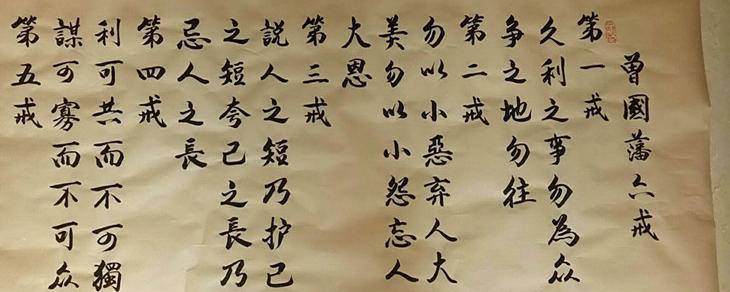 曾國藩六戒
第一戒
久利之事勿為众
争之地勿往
第二戒
勿以小惡弃人大
美勿以小怨忘人
大恩
第三戒
説人之短乃护己
之短夸己之長乃
忌人之長
第四戒
利可共而不可獨
謀可寡而不可众
第五戒